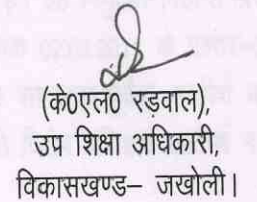 (के०एल० रड़वाल),
उप शिक्षा अधिकारी,
विकासखण्ड– जखोली।